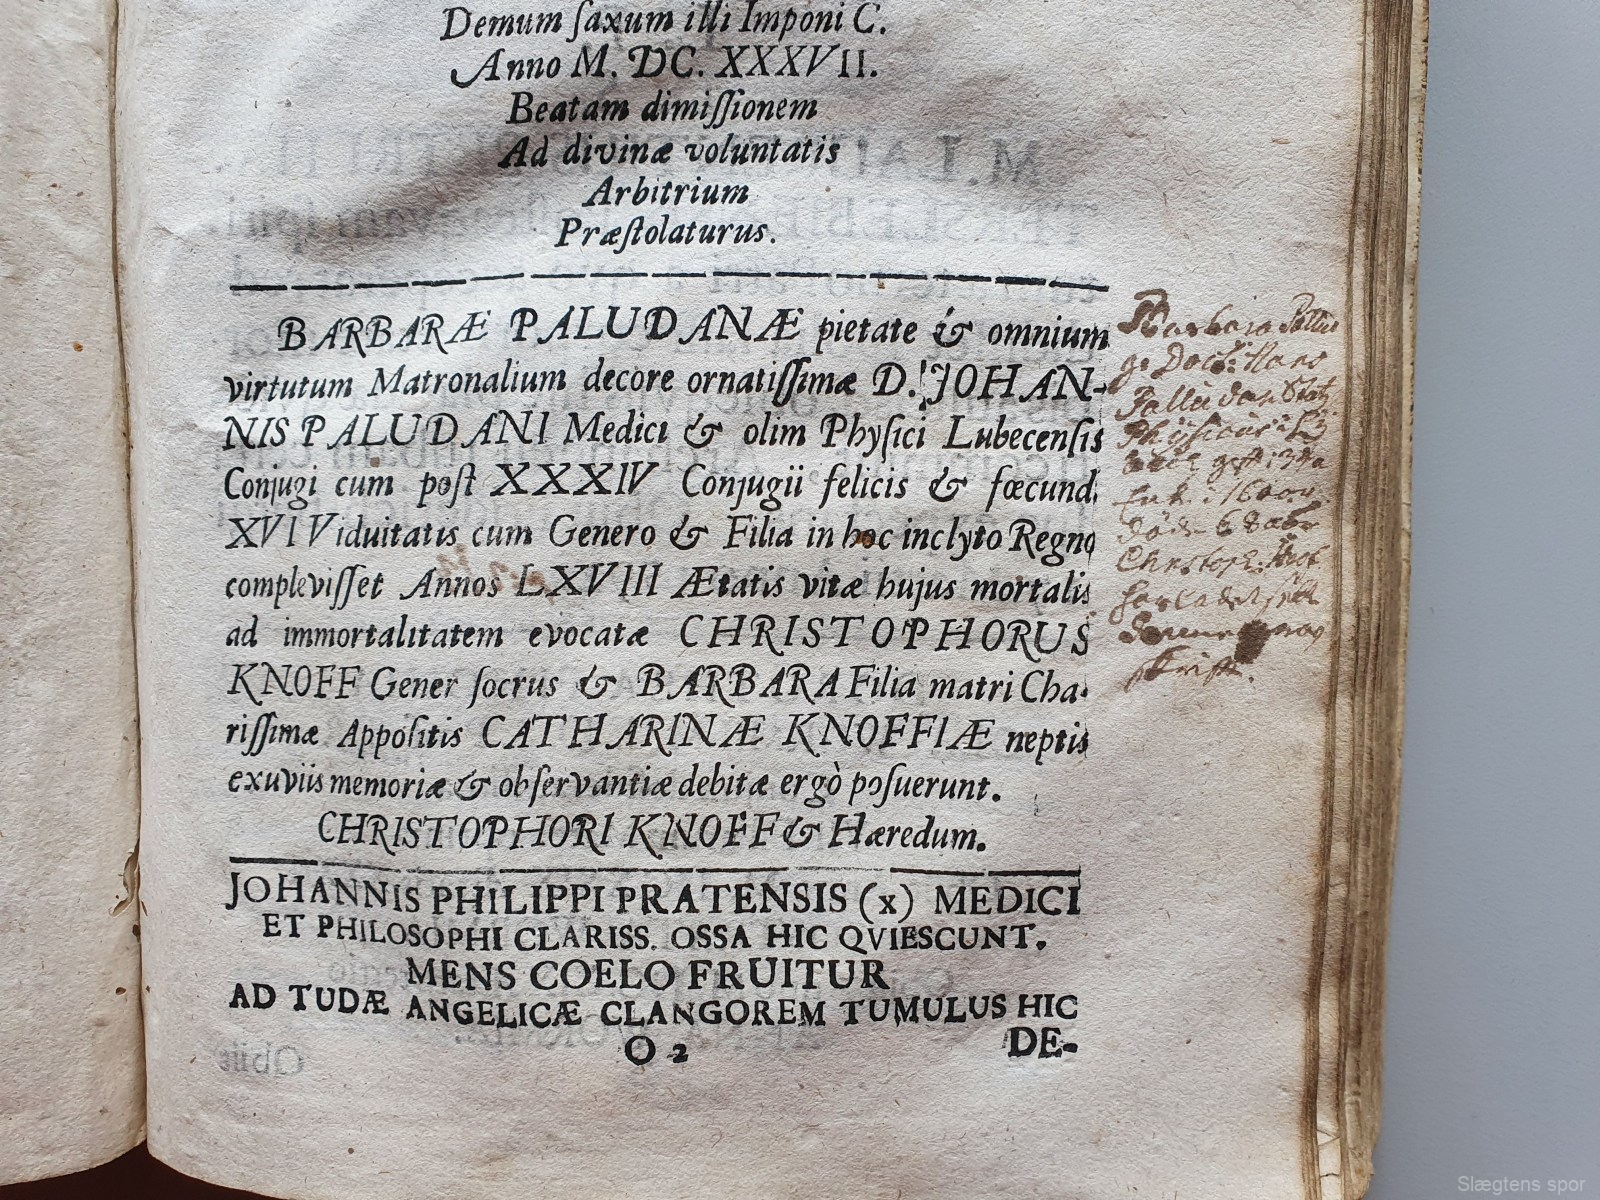 Demum ſaxum illi Imponi C.
Anno M. DC. XXXVII.
Beatam dimiſſionem
Ad divinæ voluntatis
Arbitrium
Præſtolaturus.
BARBARÆ PALUDANÆ pietate & omnium
virtutum Matronalium decore ornatiſſimæ D. JOHAN-
NIS PALUDANI Medici & olim Phyſici Lubecenſis
Conjugi cum poſt XXXIV Conjugii felicis & fœcund.
XVI Viduitatis cum Genero & Filia in hoc inclyto Regno
compleviſſet Annos LXVIII Ætatis vitæ hujus mortalis
ad immortalitatem evocatæ CHRISTOPHORUS
KNOFF Gener ſocrus & BARBARA Filia matri Cha-
riſſimæ Appoſitis CATHARINÆ KNOFFIÆ neptis
exuviis memoriæ & obſervantiæ debitæ ergò poſuerunt.
CHRISTOPHORI KNOFF & Hæredum.
JOHANNIS PHILIPPI PRATENSIS (x) MEDICI
ET PHILOSOPHI CLARISS. OSSA HIC QVIESCUNT.
MENS COELO FRUITUR
AD TUDÆ ANGELICÆ CLANGOREM TUMULUS HIC
O 2
DE-
Barbara
Doct: Hans
Palludan
Physicus i
Christoph:
Slægtens spor